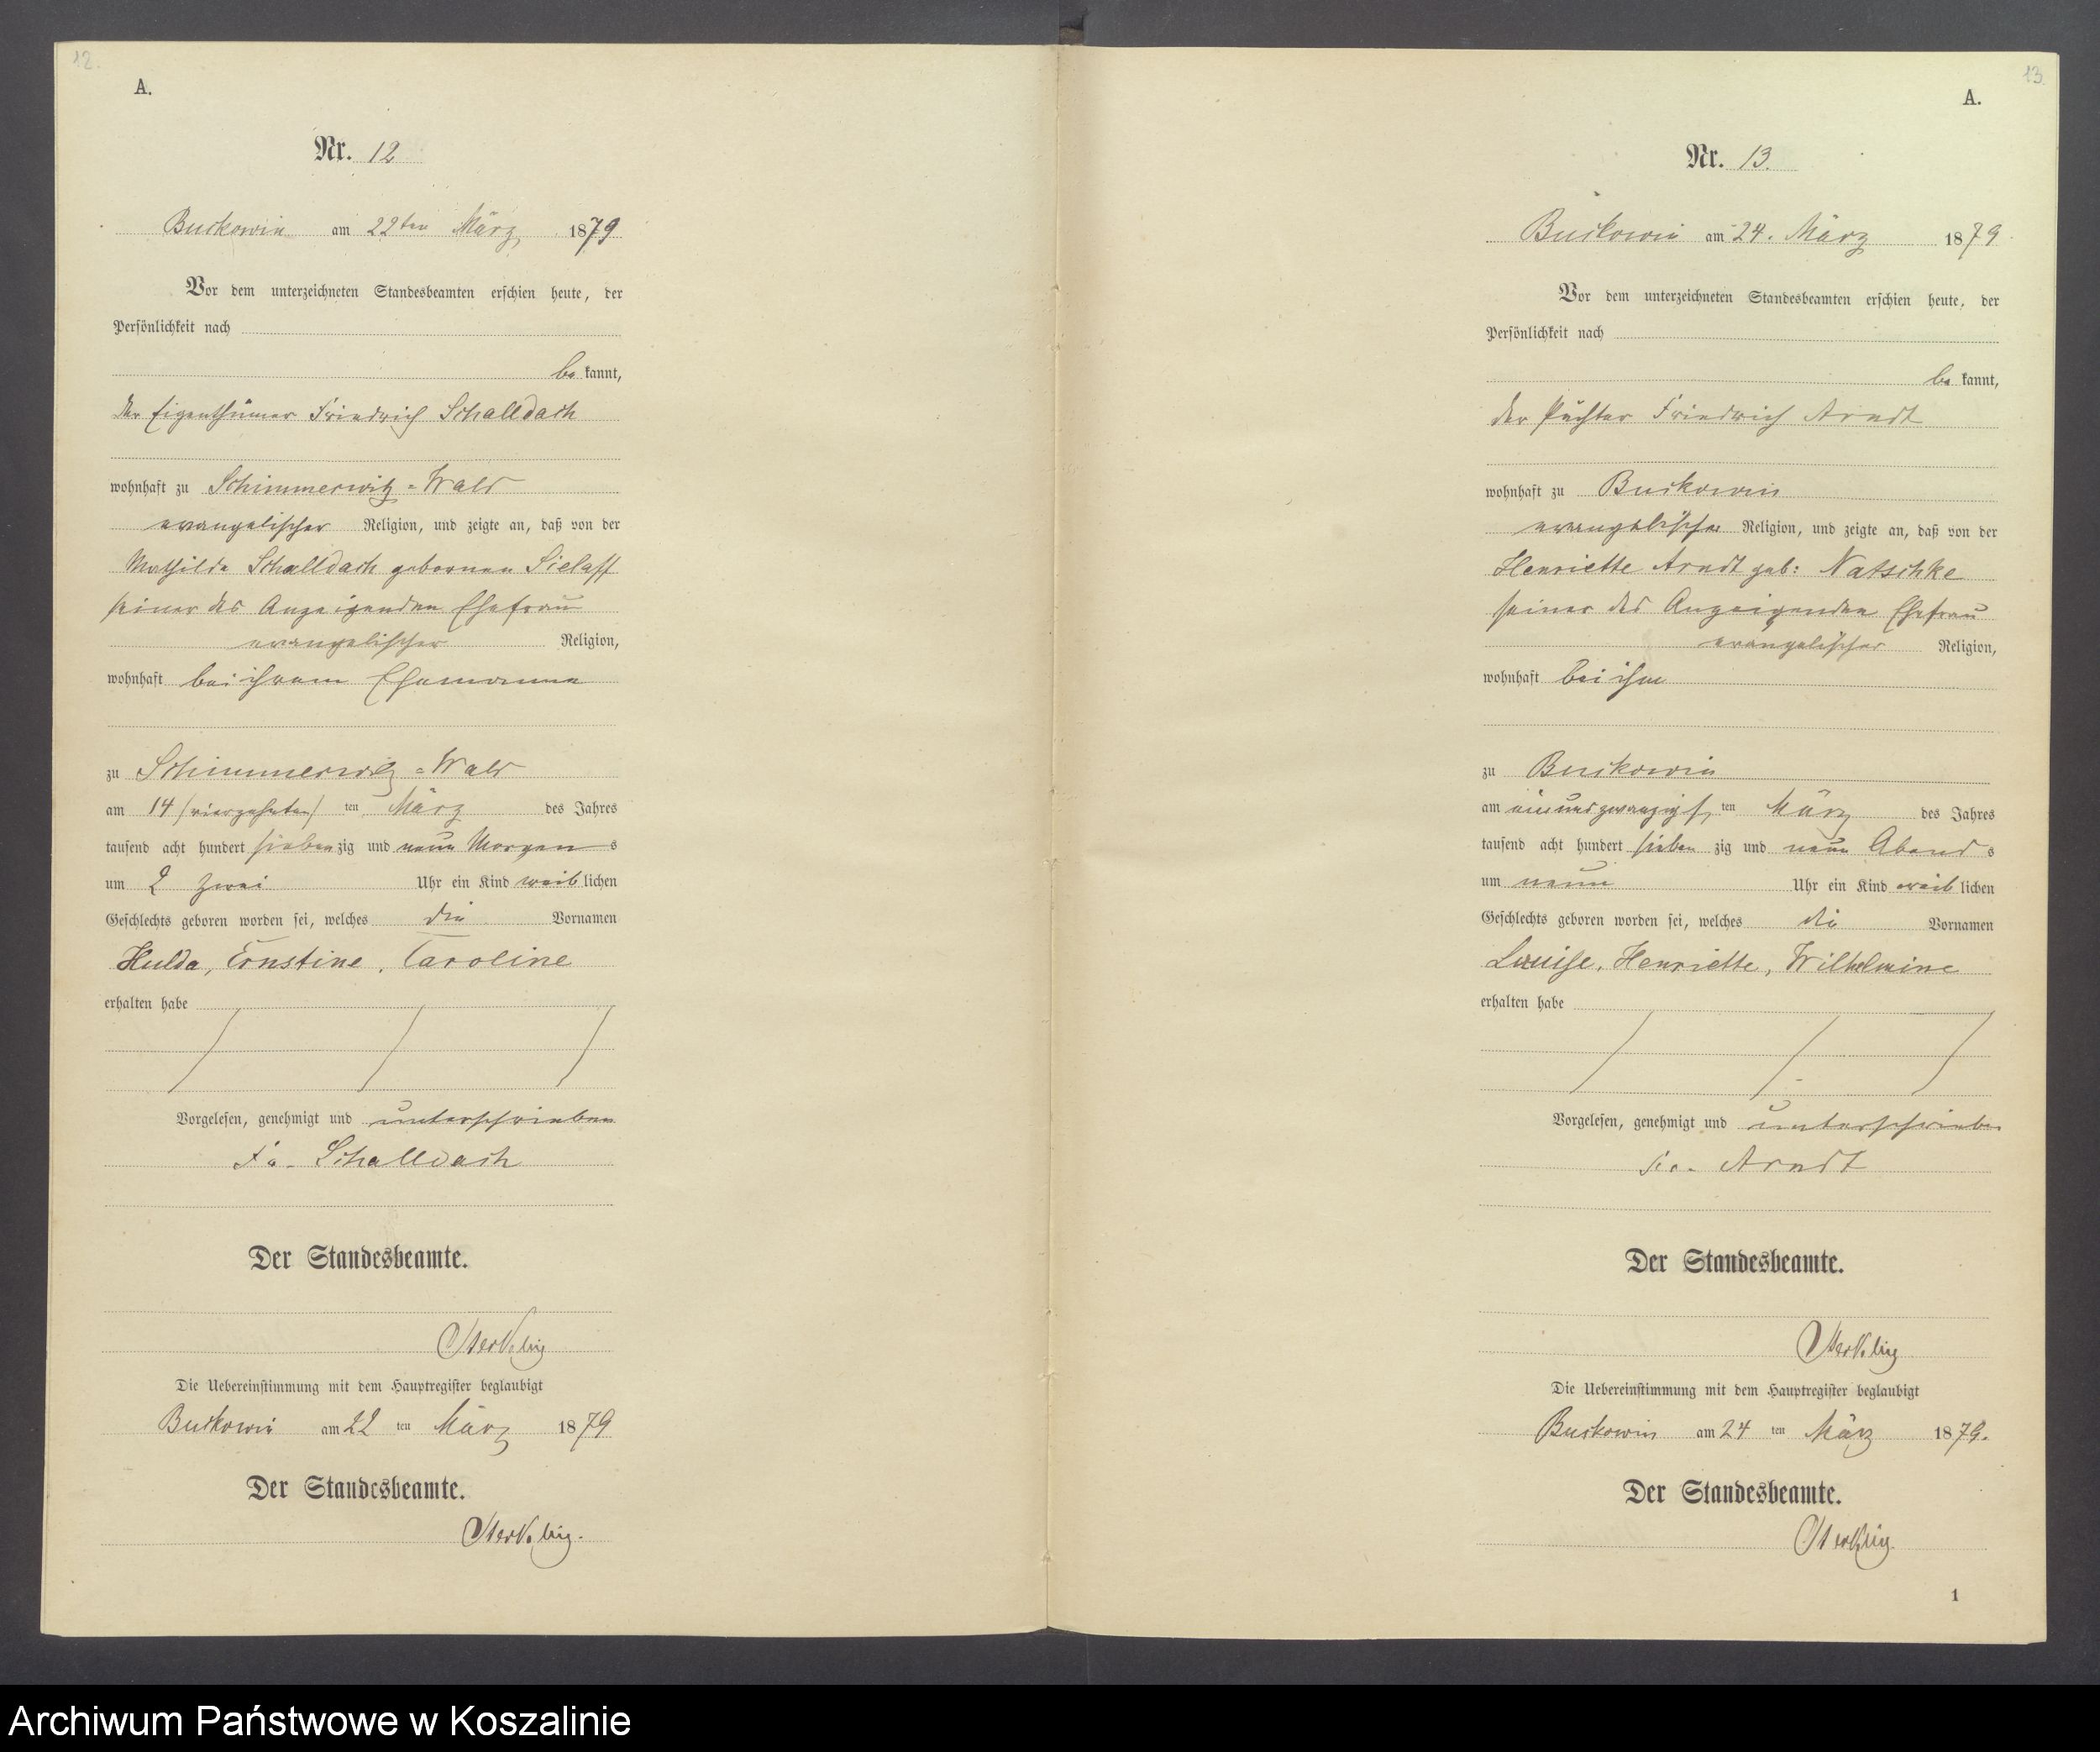 12.
A.
Nr. 12
Buckowin am 22ten März 1879
Vor dem unterzeichneten Standesbeamten erschien heute, der
Persönlichkeit nach
be kannt,
der Eigenthümer Friedrich Schalldach
wohnhaft zu Schimmerwitz=Wald
evangelischer Religion, und zeigte an, daß von der
Mathilde Schalldach gebornen Sielaff
seiner des Anzeigenden Ehefrau
evangelischer Religion,
wohnhaft bei ihrem Ehemanne
zu Schimmerwitz=Wald
am 14 (vierzehnten) ten März des Jahres
tausend acht hundert siebenzig und neun Morgens
um 2 zwei Uhr ein Kind weiblichen
Geschlechts geboren worden sei, welches die Vornamen
Hulda, Ernstine, Caroline
erhalten habe
Vorgelesen, genehmigt und unterschrieben
Fr. Schalldach
Der Standesbeamte.
Die Uebereinstimmung mit dem Hauptregister beglaubigt
Buckowin am 22 ten März 1879
Der Standesbeamte.
13
A.
Nr. 13.
Buckowin am 24. März 1879
Vor dem unterzeichneten Standesbeamten erschien heute, der
Persönlichkeit nach
be kannt,
der Pächter Friedrich Arndt
wohnhaft zu Buckowin
evangelischer Religion, und zeigte an, daß von der
Henriette Arndt geb: Natschke
seiner des Anzeigenden Ehefrau
evangelischer Religion,
wohnhaft bei ihm
zu Buckowin
am einundzwanzigst ten März des Jahres
tausend acht hundert sieben zig und neun Abends
um neun Uhr ein Kind weiblichen
Geschlechts geboren worden sei, welches die Vornamen
Louise, Henriette, Wilhelmine
erhalten habe
Vorgelesen, genehmigt und unterschrieben
Fr. Arndt
Der Standesbeamte.
Die Uebereinstimmung mit dem Hauptregister beglaubigt
Buckowin am 24 ten März 1879.
Der Standesbeamte.
1
Archiwum Państwowe w Koszalinie